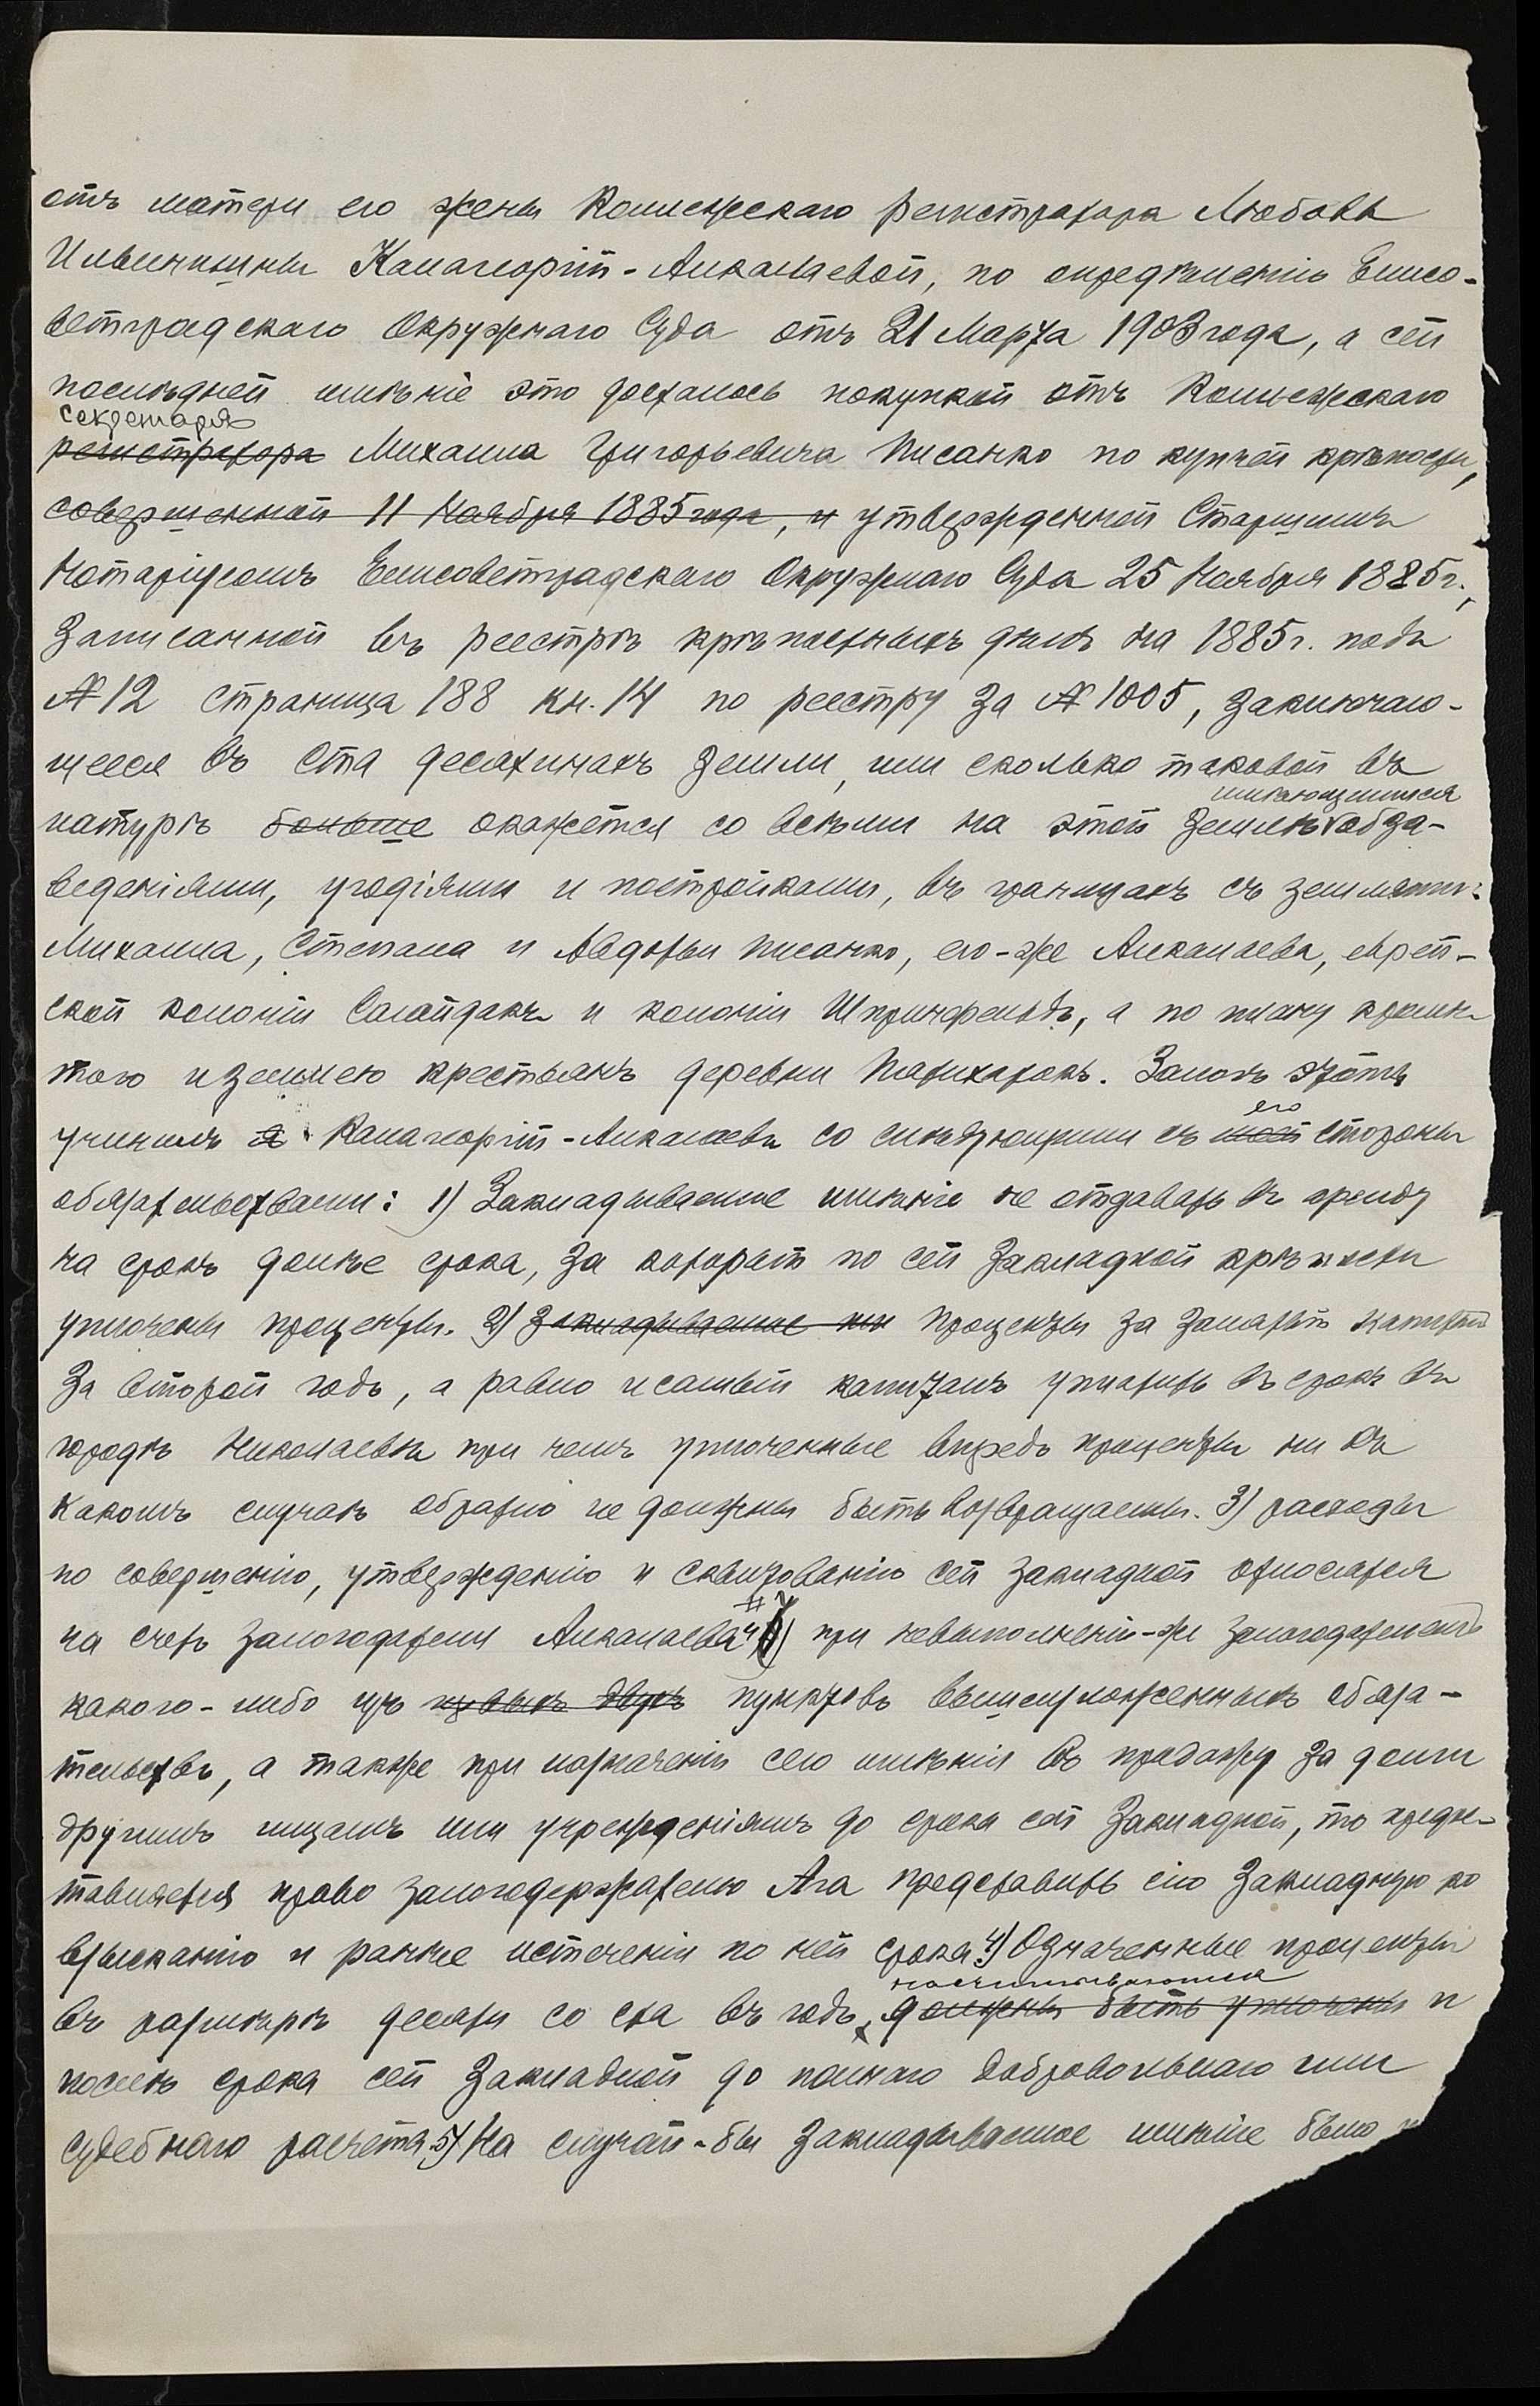 отъ матери его жены Коллежскаго регистратора Любовь
Ильиничишны Каллагеоргій-Алкалаевой, по опредѣленію Елисо-
ветградскаго Окружнаго Суда отъ 21 Марта 1903 года, а сей
послѣдней имѣніе это досталось покупкой отъ Коллежскаго
секретаря
регистратора Михаила Григорьевича Писанко по купчей крѣпости,
совершенной 11 Ноября 1885 года, и утвержденной Старшимъ
Нотаріусомъ Елисоветградскаго Окружнаго Суда 25 Ноября 1885 г.,
записанной въ реестрѣ крѣпостныхъ дѣлъ на 1885 г. подъ
№ 12 страница 188 кн. 14 по реестру за № 1005, заключаю-
щееся въ ста десятинахъ земли, или сколько таковой въ
имѣющимися
натурѣ больше окажется со всѣми на этой землѣ обза-
веденіями, угодіями и постройками, въ границахъ съ землями:
Михаила, Степана и Авдотьи Писанко, его-же Алкалаева, еврей-
ской колоніи Сагайдакъ и колоніи Шпринфельдъ, а по плану кромѣ
того и землею крестьянъ деревни . Залогъ этотъ
его
учинилъ я Калагеоргій-Алкалаевъ со слѣдующими съ моей стороны
обязательствами: 1) Закладываемое имѣніе не отдавать въ аренду
на срокъ долѣе срока, за который по сей закладной крѣпости
уплочены проценты. 2) Закладываемое им проценты за занятый капиталъ
за второй годъ, а равно и самый капиталъ уплатить въ срокъ въ
городѣ Николаевѣ при чемъ уплоченные впредь проценты ни въ
какомъ случаѣ обратно не должны быть возвращаемы. 3) расходы
по совершенію, утвержденію и сей закладной относятся
на счетъ залогодателя Алкалаева и при невыполненіи-же залогодателемъ
какого-либо изъ первыхъ двухъ пунктовъ вышеизложенныхъ обяза-
тельствъ, а также при назначеніи сего имѣнія въ продажу за долги
другимъ лицамъ или учрежденіямъ до срока сей закладной, то предос-
тавляется право залогодержателю Ага представить сію закладную ко
взысканію и ранѣе истеченія по ней срока 4) Означенные проценты
насчитываются
въ размѣрѣ десяти со ста въ годъ, должны быть уплочены и
послѣ срока сей закладной до полнаго добровольнаго или
судебнаго расчета. 5) На случай-бы закладываемое имѣніе было